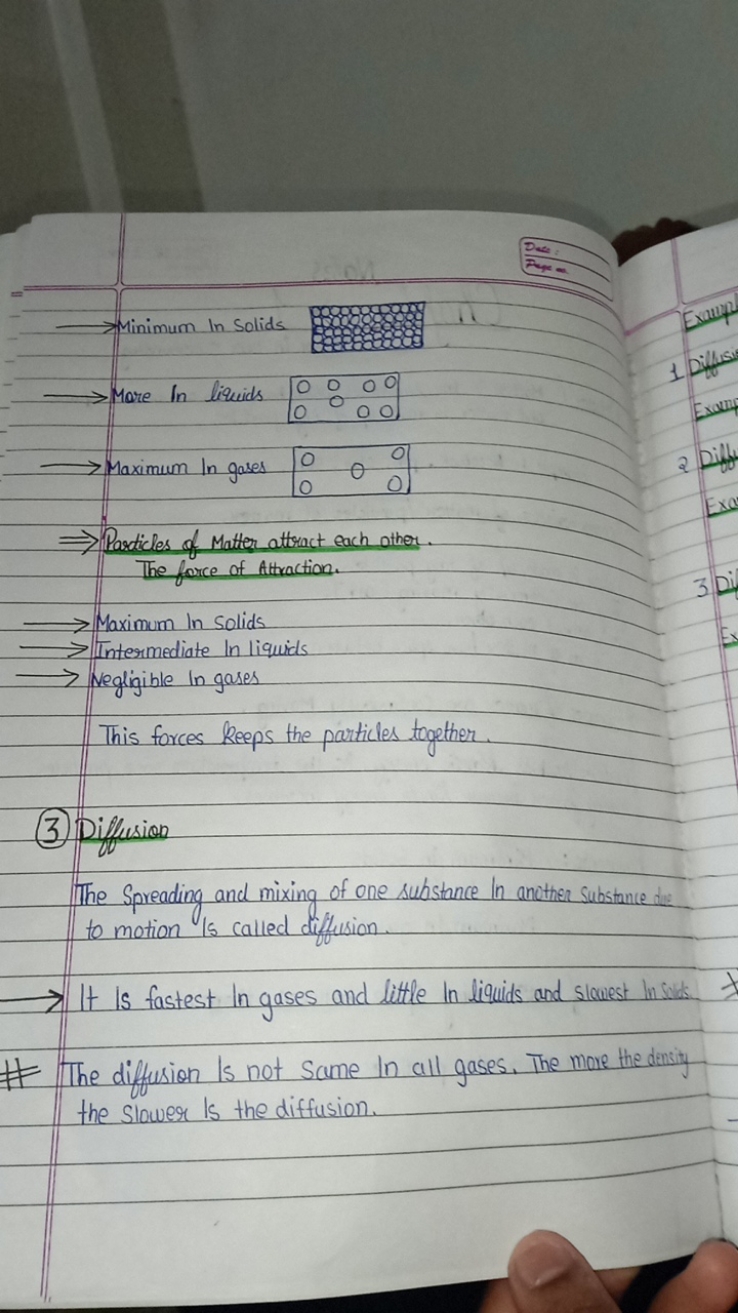 Date :
Page no.
→ Minimum In Solids
→ More In liquids
→ Maximum In gases
⇒ Particles of Matter attract each other.
The force of Attraction.
→ Maximum In Solids
→ Intermediate In liquids
→ Negligible In gases
This forces keeps the particles together.
3 Diffusion
The Spreading and mixing of one substance In another Substance due
to motion Is called diffusion.
→ It Is fastest In gases and little In liquids and slowest In Solids.
# The diffusion Is not Same In all gases. The more the density
the slower Is the diffusion.
Exampl
1 Diffusi
Examp
2 Diff
Exa
3 Di
Ex